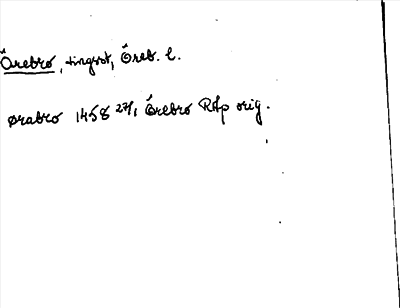 Örebro, tingsst, Öreb. l.
Ørabro 1458 27/1 Örebro RAp orig.